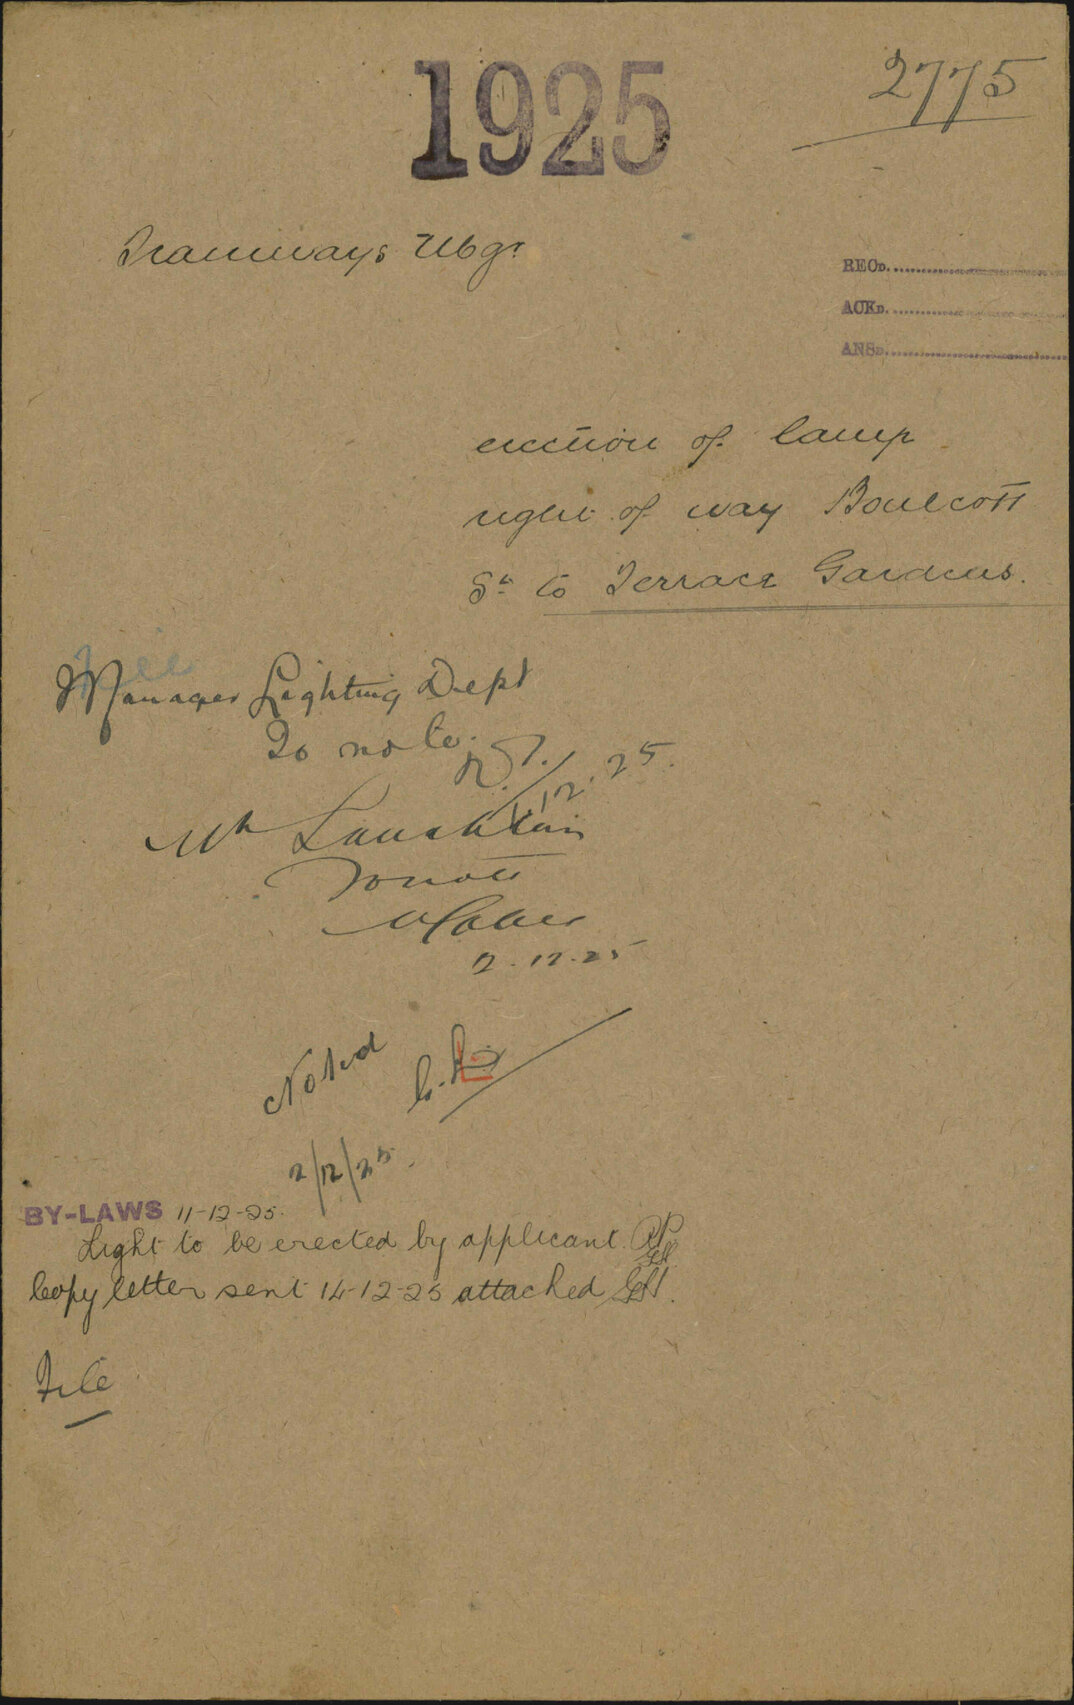 1925
2775
Tramways Mgr
RECD.
ACKD.
ANSD.
erection of lamp
right of way Boulcott
St to Terrace Gardens.
Manager Lighting Dept
To note.
1/12.25.
Mr Laughlin
To note
2.12.25
Noted
2/12/25.
BY-LAWS 11-12-25.
Light to be erected by applicant.
Copy letter sent 14-12-25 attached
File